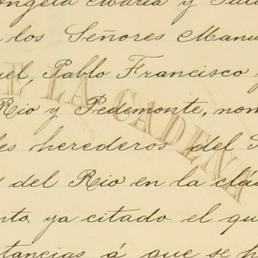 Angela Maria y
los Señores Manu
el, Pablo Francisco
Rio y Pedemonte, nom
es herederos del
del Rio en la clá
nto ya citado el qu
tancias á que se h
LA CADENA